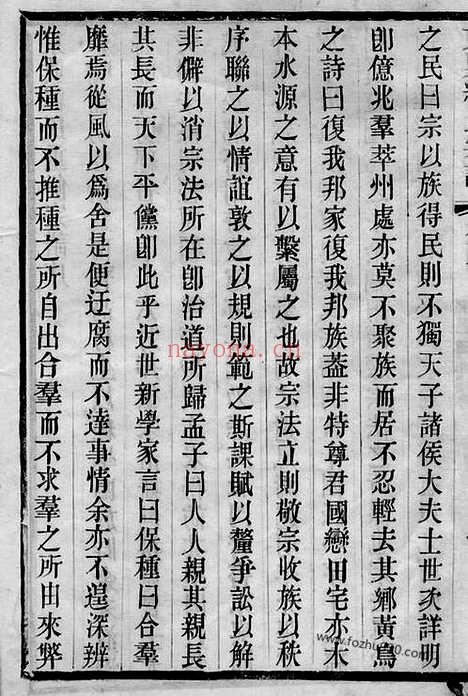 之民曰宗以族得民則不獨天子諸侯大夫士世次詳明
卽億兆羣萃州處亦莫不聚族而居不忍輕去其鄉黃鳥
之詩曰復我邦家復我邦族蓋非特尊君國戀田宅亦木
本水源之意有以繫屬之也故宗法立則敬宗收族以秩
序聯之以情誼敦之以規則範之斯課賦以釐爭訟以解
非僻以消宗法所在卽治道所歸孟子曰人人親其親長
其長而天下平儻卽此乎近世新學家言曰保種曰合羣
靡焉從風以爲舍是便迂腐而不達事情余亦不遑深辨
惟保種而不推種之所自出合羣而不求羣之所由來弊
nayona.cn
www.fozhu920.com